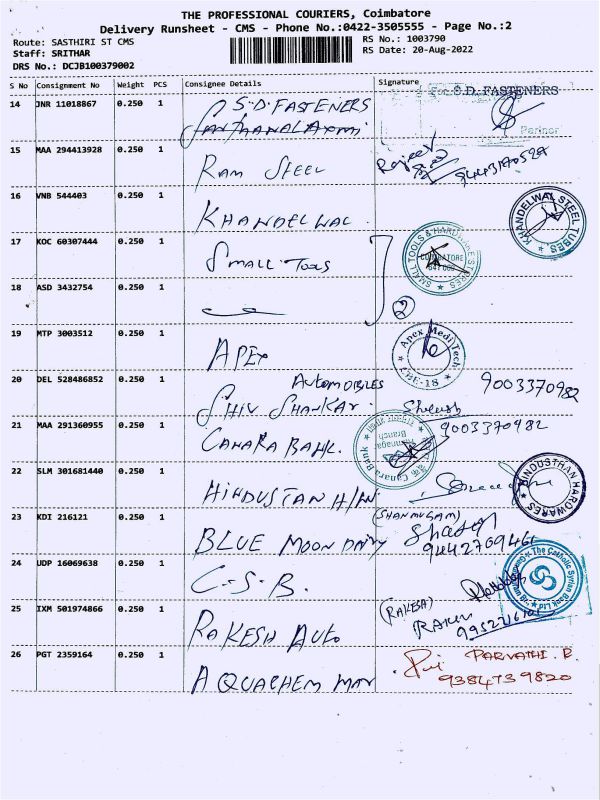 THE PROFESSIONAL COURIERS, Coimbatore
Delivery Runsheet - CMS - Phone No.:0422-3505555 - Page No.:2
Route: SASTHIRI ST CMS
Staff: SRITHAR
DRS No.: DCJB100379002
RS No.: 1003790
RS Date: 20-Aug-2022
S No Consignment No Weight PCS Consignee Details Signature
14 JNR 11018867 0.250 1 S.D. FASTENERS For S.D. FASTENERS
Partner
15 MAA 294413928 0.250 1 RAM STEEL Rajeev
16 VNB 544403 0.250 1 KHANDELWAL KHANDELWAL STEEL TUBES
17 KOC 60307444 0.250 1 SMALL TOOLS SMALL TOOLS & HARDWARE STORES COIMBATORE
18 ASD 3432754 0.250 1 2
19 MTP 3003512 0.250 1 APEX Apex Medi Tech CBE-18
20 DEL 528486852 0.250 1 AUTOMOBILES
SHIV SHANKAR 9003370982
21 MAA 291360955 0.250 1 CANARA BANK Canara Bank Branch 9003370982
22 SLM 301681440 0.250 1 HINDUSTAN H/W HINDUSTHAN HARDWARES
23 KDI 216121 0.250 1 BLUE MOON DAIRY (SHANMUGAM)
9442769461
24 UDP 16069638 0.250 1 C.S.B. The Catholic Syrian Bank Ltd
25 IXM 501974866 0.250 1 RAKESH AUTO (RAKESH)
26 PGT 2359164 0.250 1 AQUACHEM MAR PARVATHI. R.
9384739820